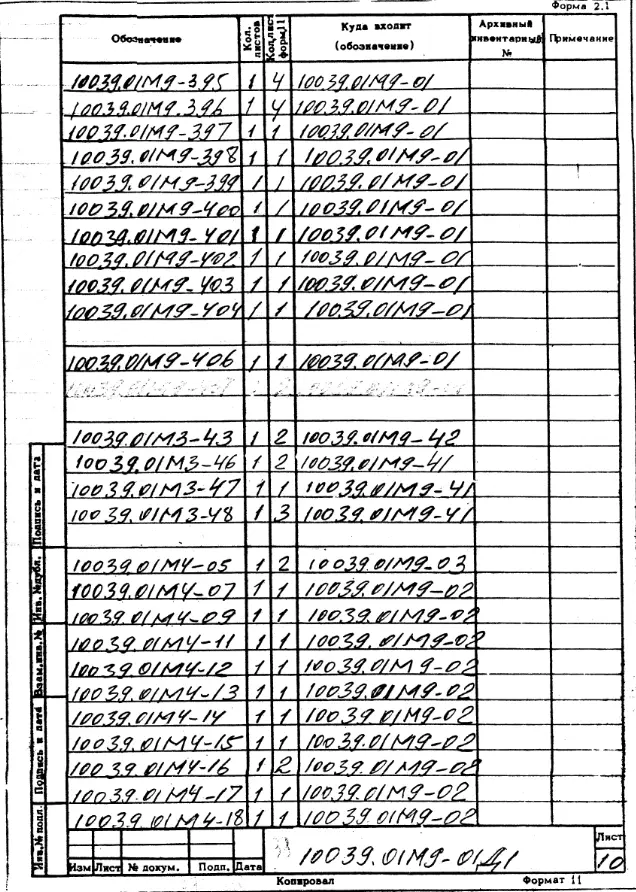 Форма 2.1
Обозначение Кол. листов Кол. лист форм. 11 Куда входит (обозначение) Архивный инвентарный № Примечание
10039.01М9-395 1 4 10039.01М9-01
10039.01М9.396 1 4 10039.01М9-01
10039.01М9-397 1 1 10039.01М9-01
10039.01М9-398 1 1 10039.01М9-01
10039.01М9-399 1 1 10039.01М9-01
10039.01М9-400 1 1 10039.01М9-01
10039.01М9-401 1 1 10039.01М9-01
10039.01М9-402 1 1 10039.01М9-01
10039.01М9-403 1 1 10039.01М9-01
10039.01М9-404 1 1 10039.01М9-01
10039.01М9-406 1 1 10039.01М9-01
10039.01М3-43 1 2 10039.01М9-42
10039.01М3-46 1 2 10039.01М9-41
10039.01М3-47 1 1 10039.01М9-41
10039.01М3-48 1 3 10039.01М9-41
10039.01М4-05 1 2 10039.01М9-03
10039.01М4-07 1 1 10039.01М9-02
10039.01М4-09 1 1 10039.01М9-02
10039.01М4-11 1 1 10039.01М9-02
10039.01М4-12 1 1 10039.01М9-02
10039.01М4-13 1 1 10039.01М9-02
10039.01М4-14 1 1 10039.01М9-02
10039.01М4-15 1 1 10039.01М9-02
10039.01М4-16 1 2 10039.01М9-02
10039.01М4-17 1 1 10039.01М9-02
10039.01М4-18 1 1 10039.01М9-02
Подпись и дата
Инв. № дубл.
Взам. инв. №
Подпись и дата
Инв. № подл.
Изм Лист № докум. Подп. Дата
10039.01М9-01Д1
Лист
10
Копировал Формат 11